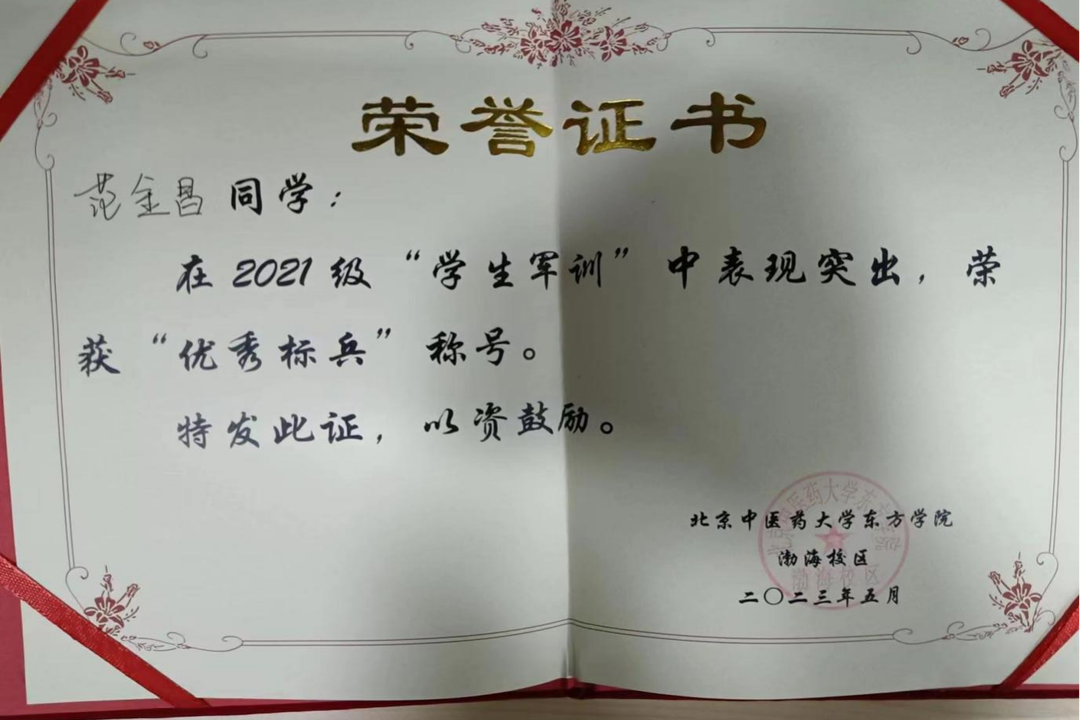 荣誉证书
范金昌同学：
在2021级“学生军训”中表现突出，荣
获“优秀标兵”称号。
特发此证，以资鼓励。
北京中医药大学东方学院
渤海校区
二〇二三年五月
渤海校区